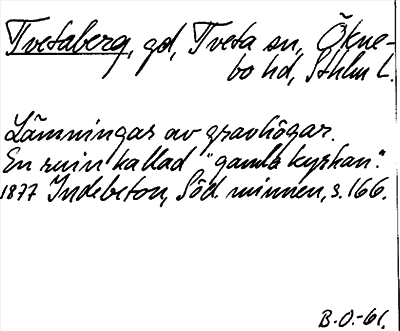 Tvetaberg, gd, Tveta sn, Ökne-
bo hd, Sthlm L.
Lämningar av gravhögar.
En ruin kallad "gamla kyrkan".
1877 Indebetou, Söd. minnen, s. 166.
B.O.-61.